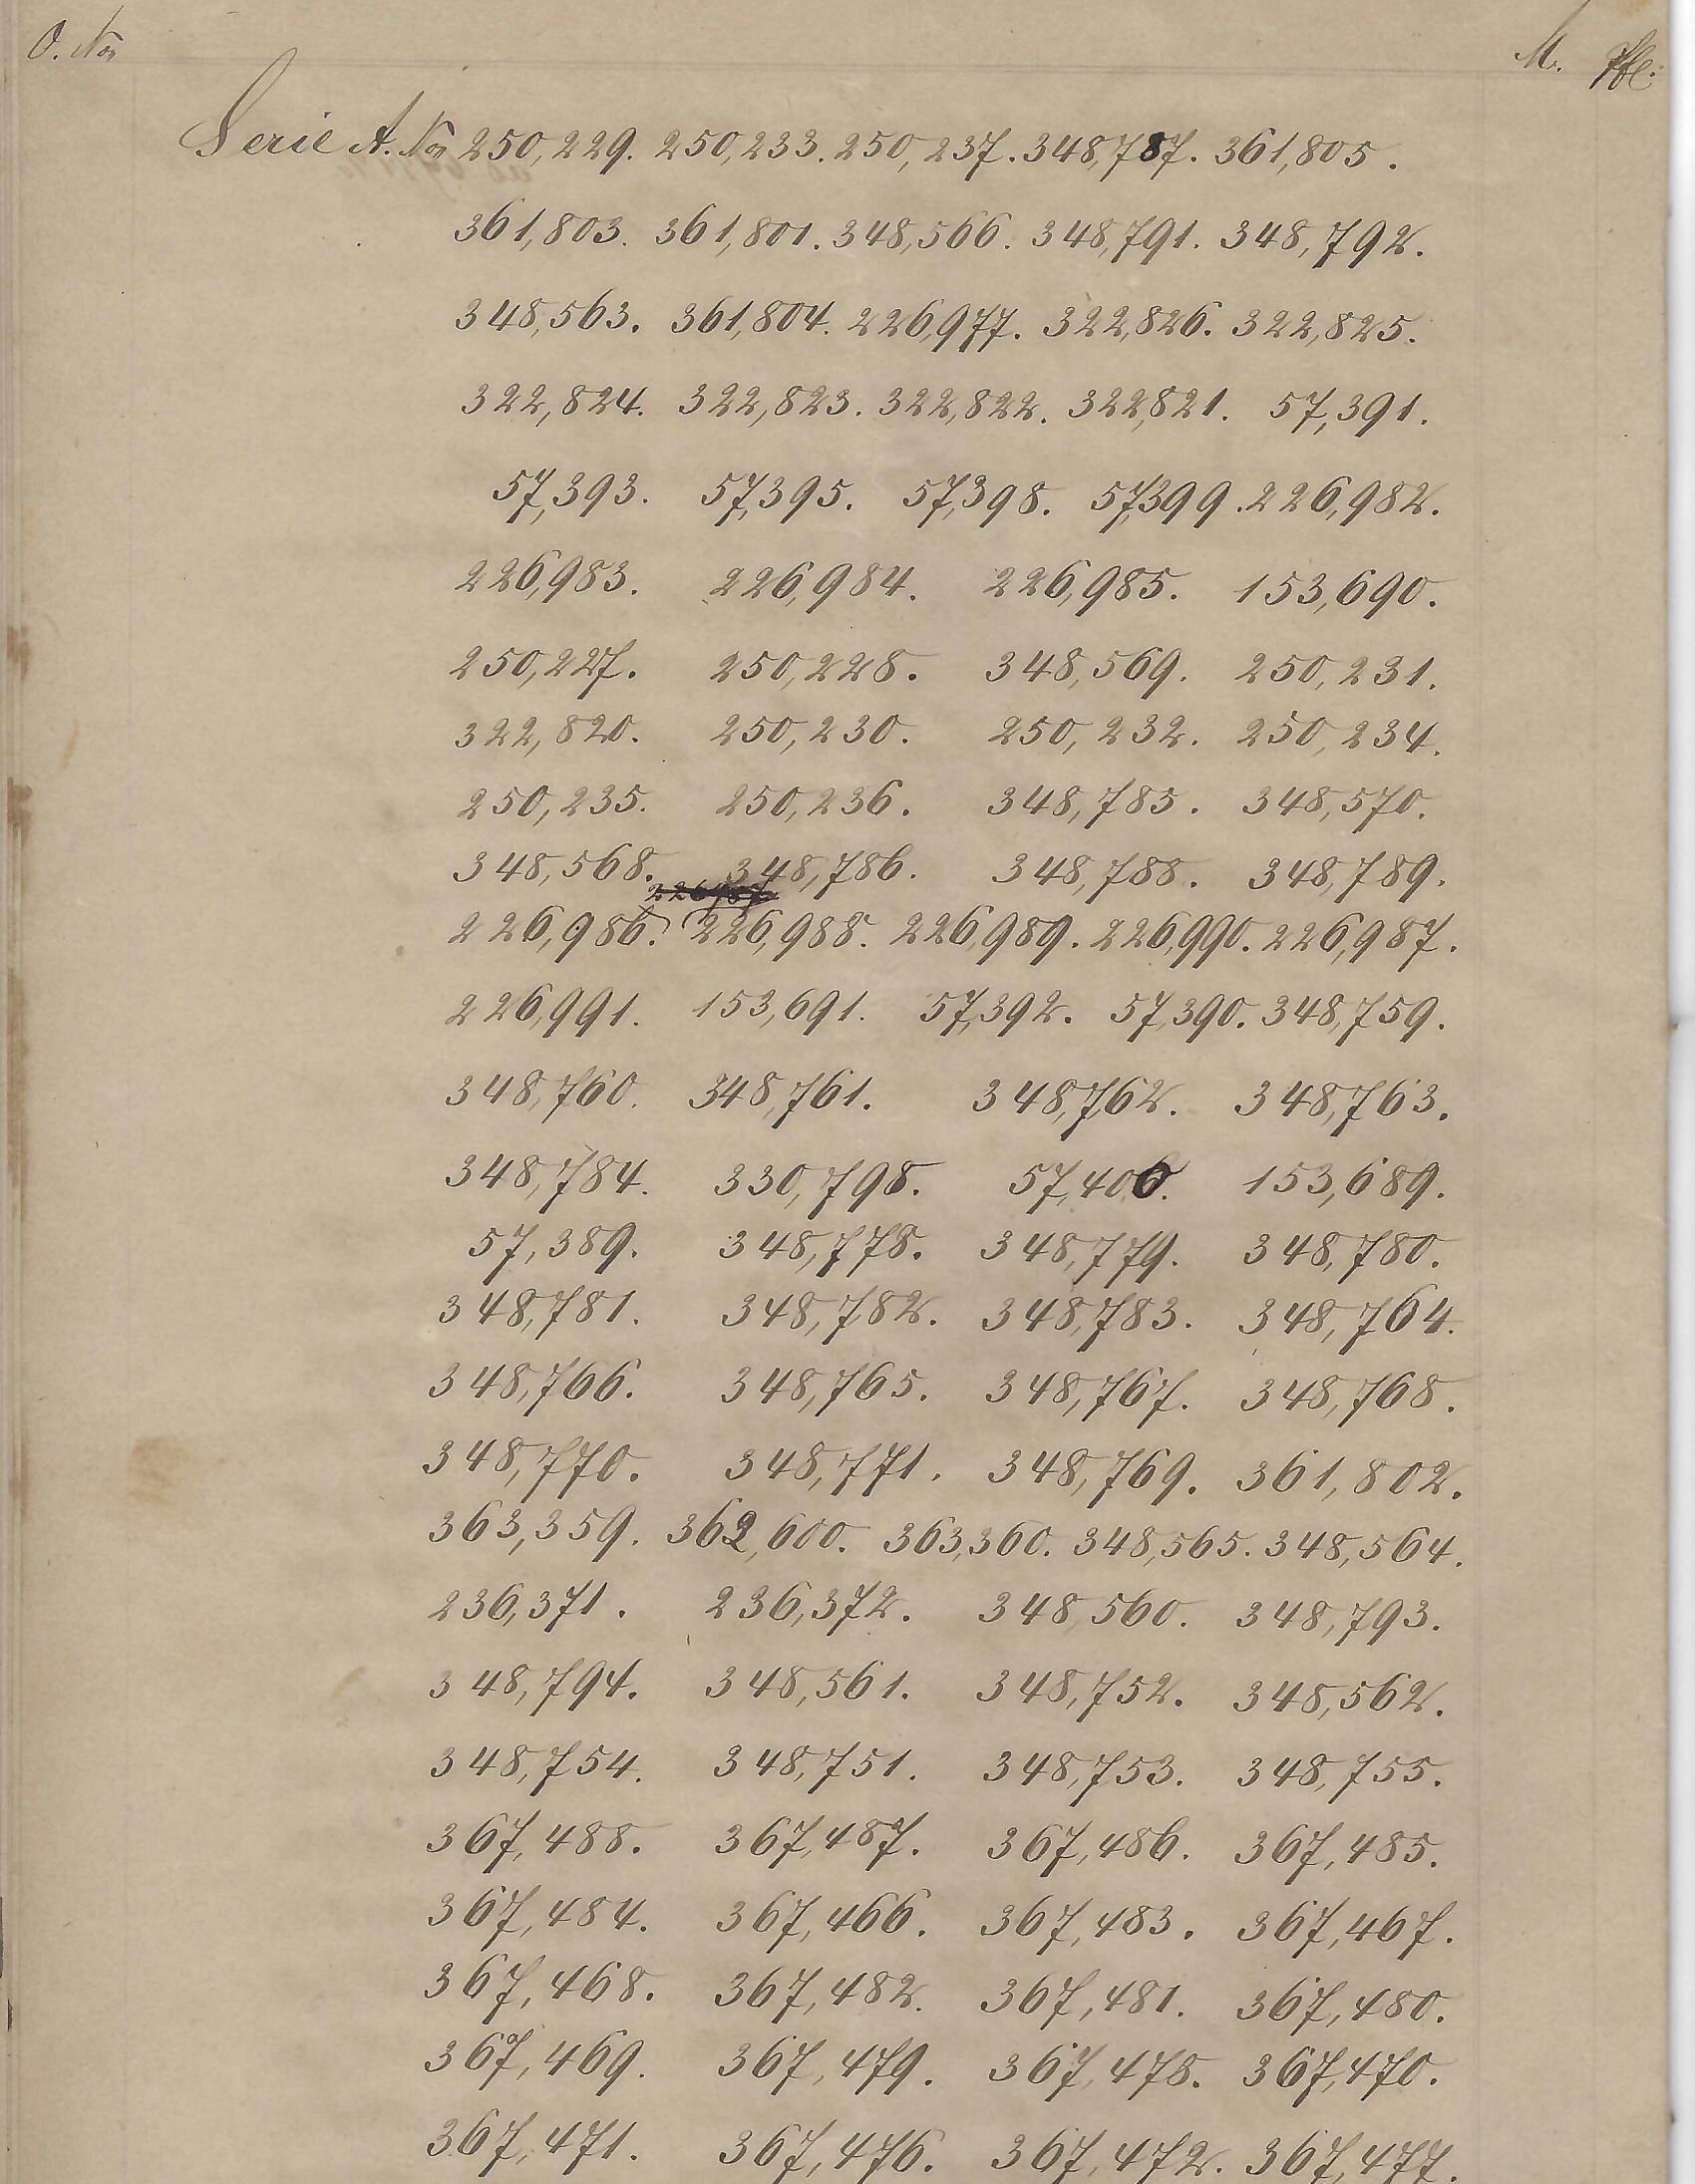 O. No M. Pfl.
Serie A. No 250,229. 250,233. 250,237. 348,787. 361,805.
361,803. 361,801. 348,566. 348,791. 348,792.
348,563. 361,804. 226,977. 322,826. 322,825.
322,824. 322,823. 322,822. 322,821. 57,391.
57,393. 57,395. 57,398. 57,399. 226,982.
226,983. 226,984. 226,985. 153,690.
250,227. 250,228. 348,569. 250,231.
322,820. 250,230. 250,232. 250,234.
250,235. 250,236. 348,785. 348,570.
348,568. 348,786. 348,788. 348,789.
226,986. 226,988. 226,989. 226,990. 226,987.
226,991. 153,691. 57,392. 57,390. 348,759.
348,760. 348,761. 348,762. 348,763.
348,784. 330,798. 57,406. 153,689.
57,389. 348,778. 348,779. 348,780.
348,781. 348,782. 348,783. 348,764.
348,766. 348,765. 348,767. 348,768.
348,770. 348,771. 348,769. 361,802.
363,359. 362,600. 363,360. 348,565. 348,564.
236,371. 236,372. 348,560. 348,793.
348,794. 348,561. 348,752. 348,562.
348,754. 348,751. 348,753. 348,755.
367,488. 367,487. 367,486. 367,485.
367,484. 367,466. 367,483. 367,467.
367,468. 367,482. 367,481. 367,480.
367,469. 367,479. 367,478. 367,470.
367,471. 367,476. 367,472. 367,477.